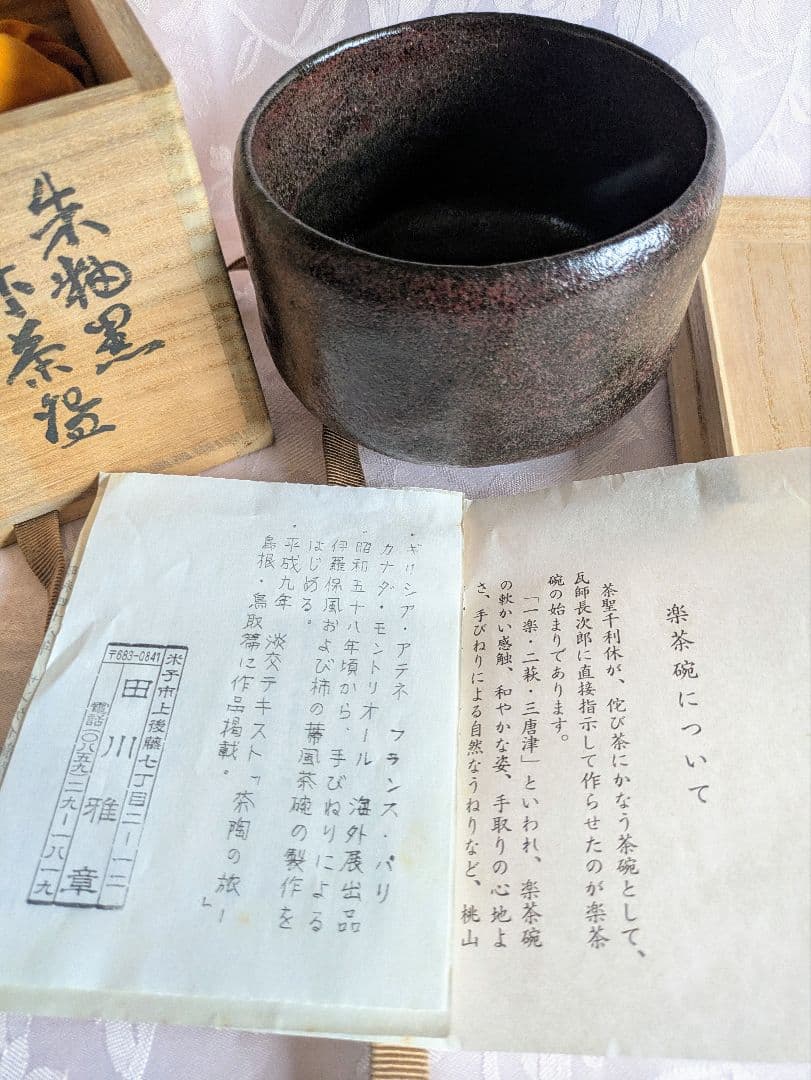 朱釉黒
茶盌
楽茶碗について
茶聖千利休が、侘び茶にかなう茶碗として、
瓦師長次郎に直接指示して作らせたのが楽茶
碗の始まりであります。
「一楽・二萩・三唐津」といわれ、楽茶碗
の軟かい感触、和やかな姿、手取りの心地よ
さ、手びねりによる自然なうねりなど、桃山
・ギリシア・アテネ フランス・パリ
カナダ・モントリオール 海外展出品
・昭和五十八年頃から、手びねりによる
伊羅保風および柿の蔕風茶碗の製作を
はじめる。
・平成九年 淡交テキスト「茶陶の旅ー
島根・鳥取篇に作品掲載。」
〒683-0841
米子市上後藤七丁目二一一二
田川雅章
電話〇八五九二九一一八一九